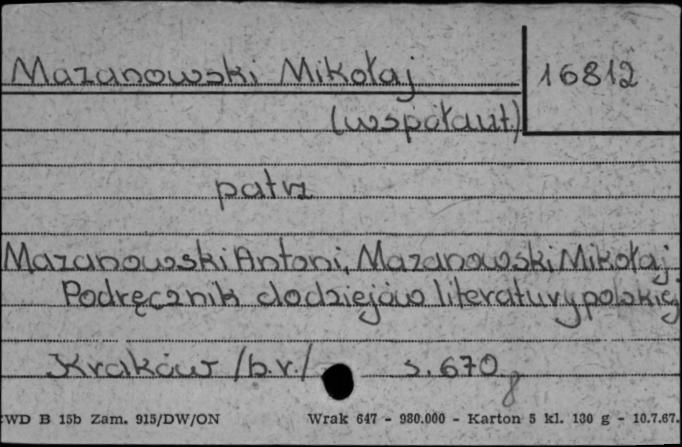 Mazanowski Mikołaj
16812
(współaut.)
patrz
Mazanowski Antoni, Mazanowski Mikołaj
Podręcznik do dziejów literatury polskiej
Kraków /b.r./ s. 670
8
WD B 15b Zam. 915/DW/ON Wrak 647 - 980.000 - Karton 5 kl. 130 g - 10.7.67.